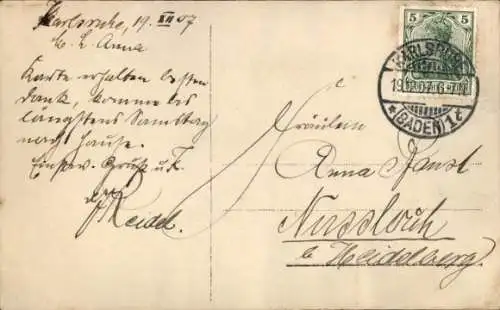 Karlsruhe, 19. XII 07
M. L. Anna
Karte erhalten besten
Dank, komme bis
längstens Samstag
nach Hause.
Einstw. Gruß u. K.
Reidel.
5 5
KARLSRUHE
19.12.07.6-7N
* (BADEN) 1 t
Fräulein
Anna Faust
Nussloch
b. Heidelberg.